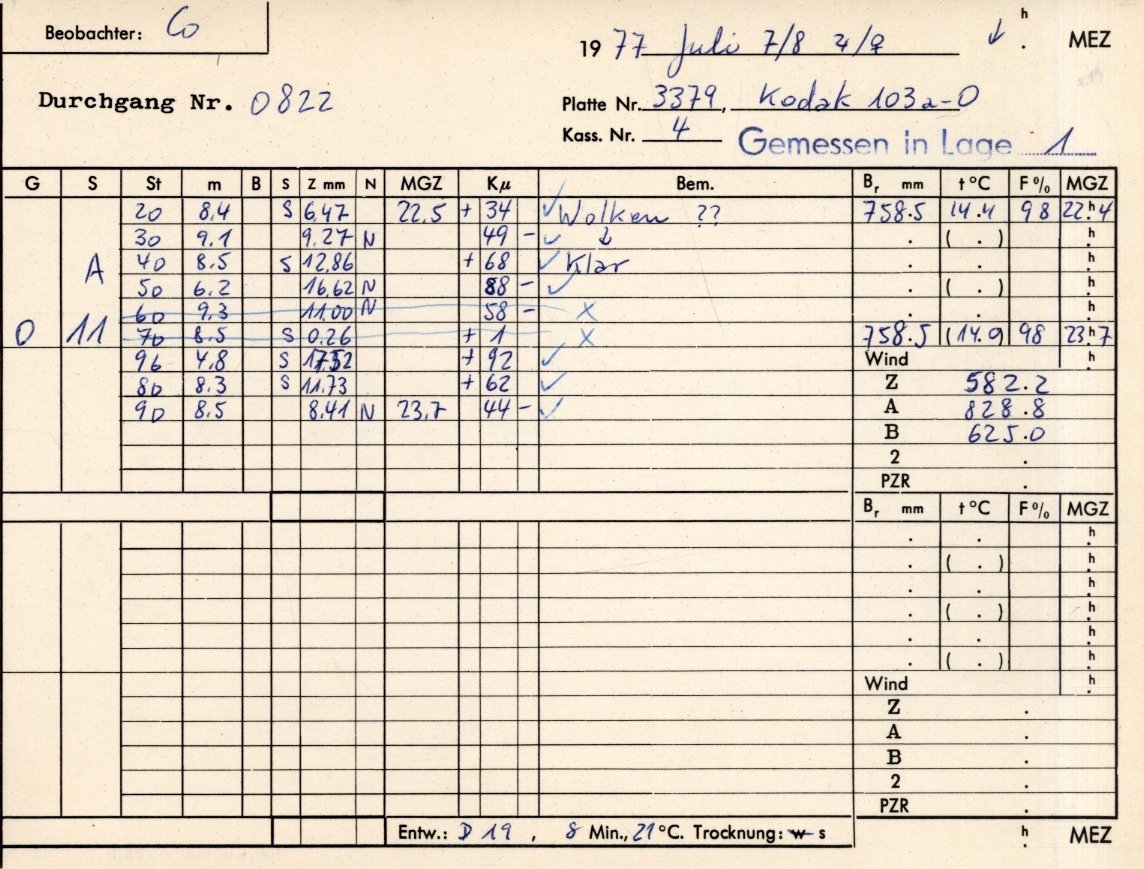 Beobachter: Co
19 77 Juli 7/8 ♃/♀ ↓ h . MEZ
Durchgang Nr. 0822
Platte Nr. 3379, Kodak 103a-O
Kass. Nr. 4 Gemessen in Lage 1
G S St m B S Z mm N MGZ Kμ Bem. Br mm t °C F % MGZ
20 8.4 S 6.47 22.5 + 34 ✓ Wolken ?? 758.5 14.4 98 22h.4
30 9.1 9.27 N 49 - ✓ ↓ . ( . ) h.
A 40 8.5 S 12.86 + 68 ✓ Klar . . h.
50 6.2 16.62 N 88 - ✓ . ( . ) h.
60 9.3 11.00 N 58 - x . . h.
0 11 70 8.5 S 0.26 + 1 x 758.5 (14.0) 98 23h.7
96 4.8 S 17.52 + 92 ✓ Wind h.
80 8.3 S 11.73 + 62 ✓ Z 582.2
90 8.5 8.41 N 23.7 44 - ✓ A 828.8
B 625.0
2 .
PZR .
Br mm t °C F % MGZ
. . h.
. ( . ) h.
. . h.
. ( . ) h.
. . h.
. ( . ) h.
Wind h.
Z .
A .
B .
2 .
PZR .
Entw.: D 19 , 8 Min., 21 °C. Trocknung: w s h . MEZ